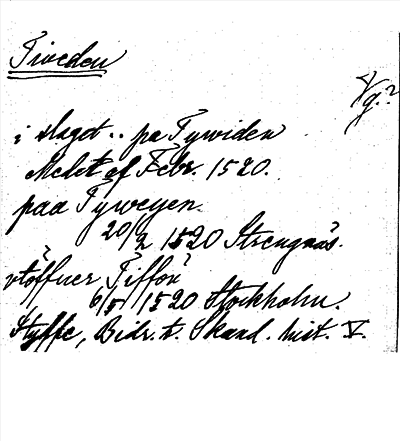 Tiveden
Vg.?
i slaget .. pa Tywiden
slutet af Febr. 1520.
paa Tyweyen.
20/2 1520 Strengnäs.
vtöffuer Tiffön
6/5 1520 Stockholm.
Styffe, Bidr. t. Skand. hist. V.